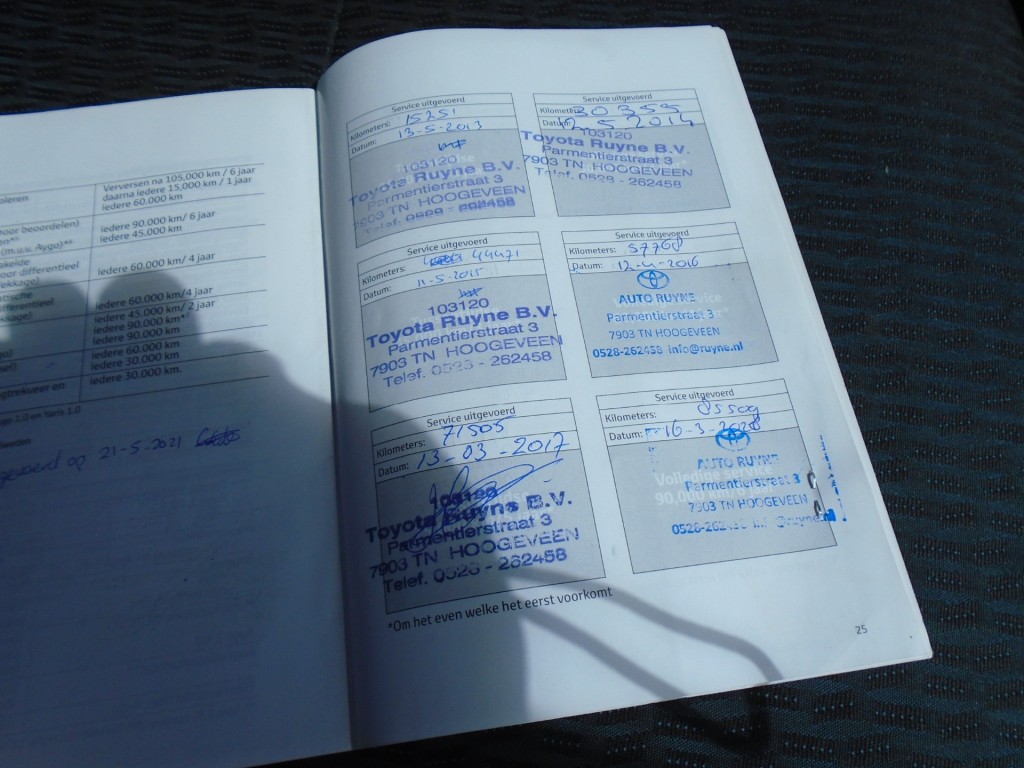 oleren
Verversen na 105.000 km / 6 jaar
daarna iedere 15.000 km / 1 jaar
iedere 60.000 km
oor beoordelen)
iedere 90.000 km/ 6 jaar
(m.u.v. Aygo)**
iedere 45.000 km
kelde
oor differentieel
iedere 60.000 km/ 4 jaar
lekkage)
atische
fferentieel
iedere 60.000 km/4 jaar
kage)
iedere 45.000 km/ 2 jaar
iedere 90.000 km*
iedere 90.000 km
iedere 60.000 km
iedere 30.000 km
gtrekveer en
iedere 30.000 km.
1.0 en Yaris 1.0
op 21-5-2021
Service uitgevoerd
Kilometers: 15251
Datum: 13-5-2013
103120
Toyota Ruyne B.V.
Parmentierstraat 3
7903 TN HOOGEVEEN
Telef. 0528 - 262458
Service uitgevoerd
Kilometers: 30 355
Datum: 12 5 2014
103120
Toyota Ruyne B.V.
Parmentierstraat 3
7903 TN HOOGEVEEN
Telef. 0528 - 262458
Service uitgevoerd
Kilometers: 44471
Datum: 11-5-2015
103120
Toyota Ruyne B.V.
Parmentierstraat 3
7903 TN HOOGEVEEN
Telef. 0528 - 262458
Service uitgevoerd
Kilometers: 57768
Datum: 12-4-2016
AUTO RUYNE
Parmentierstraat 3
7903 TN HOOGEVEEN
0528-262458 info@ruyne.nl
Service uitgevoerd
Kilometers: 71505
Datum: 13-03-2017
103120
Toyota Ruyne B.V.
Parmentierstraat 3
7903 TN HOOGEVEEN
Telef. 0528 - 262458
Service uitgevoerd
Kilometers: 85509
Datum: 16-3-2018
AUTO RUYNE
Volledige service
Parmentierstraat 3
90.000 km/6 jaar
7903 TN HOOGEVEEN
0528-262458 info@ruyne.nl
*Om het even welke het eerst voorkomt
25